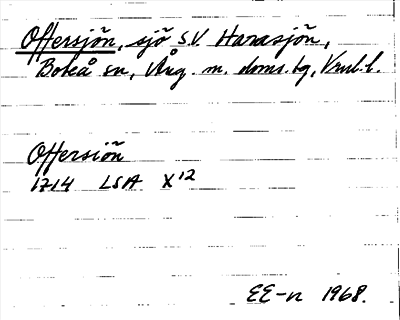 Offersjön, sjö S.V. Harasjön,
Boteå sn, Ång. m. doms.bg, Vrml.l.
Offersiön
1714 LSA X12
EE-n 1968.